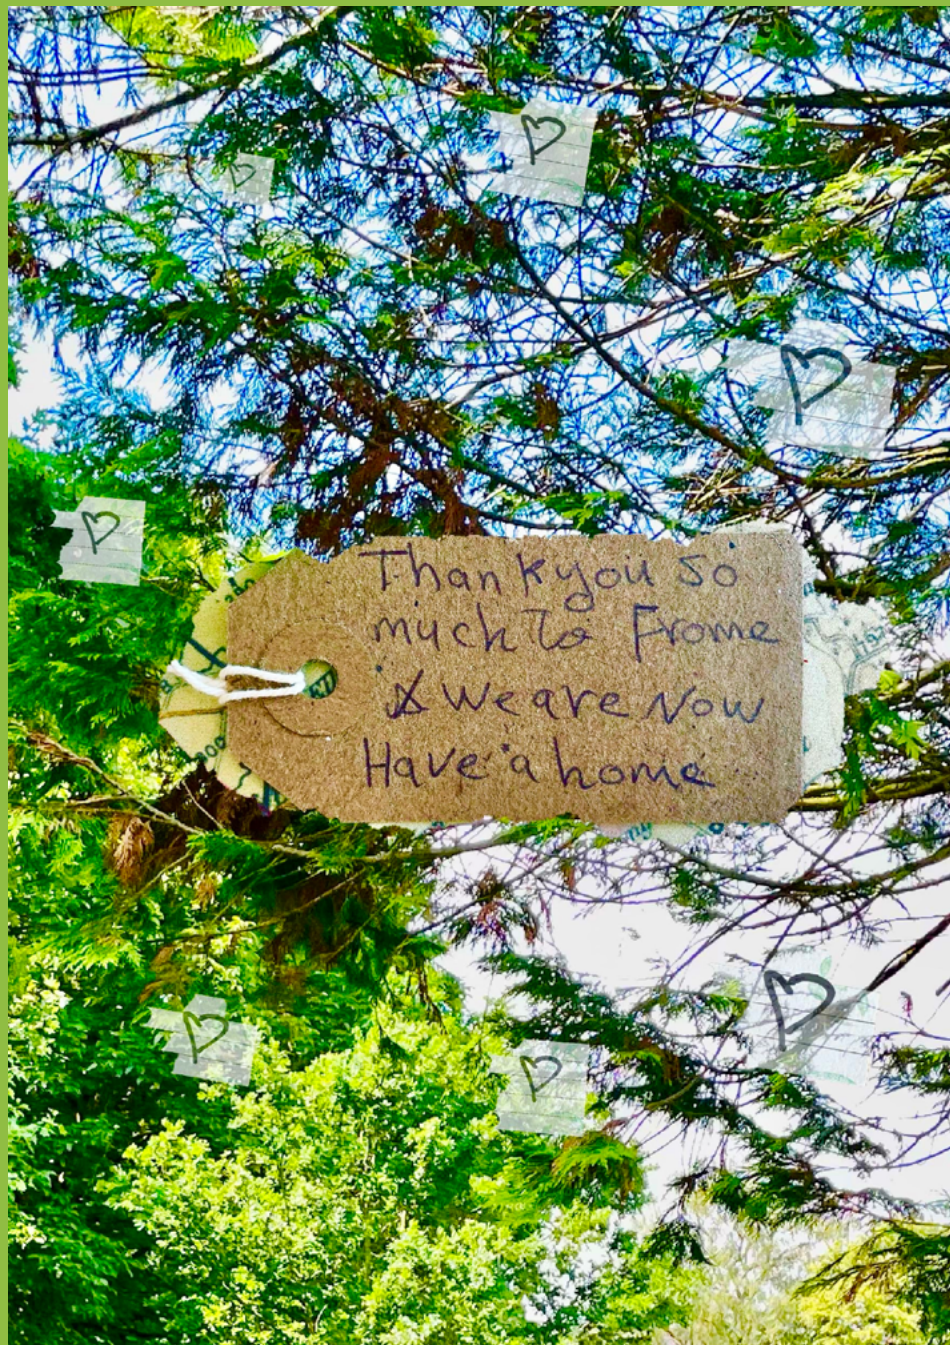 Thankyou so
much To Frome
& We are Now
Have a home